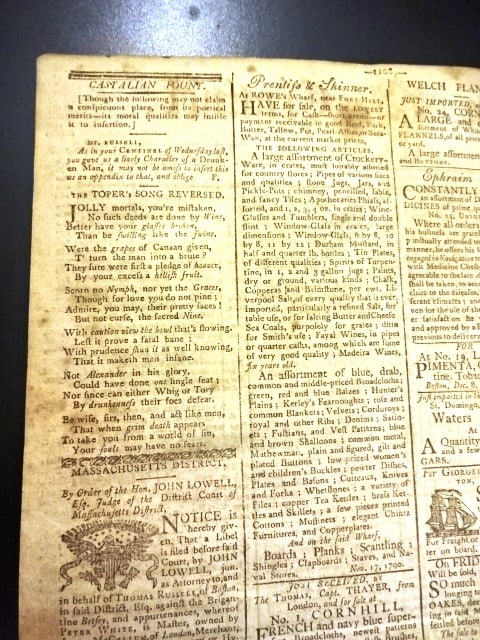 CASTALIAN FOUNT.
[Though the following may not claim
a conspicuous place, from its poetical
merits—its moral qualities may intitle
it to insertion.]
Mr. RUSSELL,
As in your CENTINEL of Wednesday last,
you gave us a lively Character of a Drunk-
en Man, it may not be amiss to insert this
as an appendix to that, and oblige F.
The TOPER'S SONG REVERSED.
JOLLY mortals, you're mistaken,
No such deeds are done by Wine,
Better have your glasses broken,
Than be swilling like the swine.
Were the grapes of Canaan given,
T' turn the man into a brute?
They sure were first a pledge of heaven,
By your excess a hellish fruit.
Scorn no Nymph, nor yet the Graces,
Though for love you do not pine;
Admire, you may, their pretty faces!
But not curse, the sacred Nine.
With caution view the bowl that's flowing,
Lest it prove a fatal bane;
With prudence shun it as well knowing,
That it maketh man insane.
Not Alexander in his glory,
Could have done one single feat;
Nor since can either Whig or Tory
By drunkenness their foes defeat.
Be wise, sirs, then, and act like men,
That when grim death appears
To take you from a world of sin,
Your souls may have no fears.
MASSACHUSETTS DISTRICT.
By Order of the Hon. JOHN LOWELL,
Esq. Judge of the District Court of
Massachusetts District,
NOTICE is
hereby giv-
en, That a Libel
is filed before said
Court, by JOHN
LOWELL, jun.
as Attorney to, and
in behalf of THOMAS RUSSELL, of Boston,
in said District, Esq. against the Brigan-
tine Betsey, and appurtenances, whereof
PETER WHITE, is Master, owned by
of London, Merchant
Prentiss & Skinner.
At ROWE's Wharf, near FORT-HILL,
HAVE for sale, on the LOWEST
terms, for Cash—short credit—or
payment received in good Beef, Pork,
Butter, Tallow, Pot, Pearl-Ashes, or Bees-
Wax, at the current market prices,
THE FOLLOWING ARTICLES.
A large assortment of Crockery-
Ware, in crates, most suitably assorted
for country stores; Pipes of various sizes
and qualities; stone Jugs, Jars, and
Pickle-Pots; chimney, pencilled, fable,
and fancy Tiles; Apothecaries Phials, as-
sorted, and 1, 2, 3, 4 oz. in crates; Wine-
Glasses and Tumblers, single and double
flint; Window-Glass in crates, large
dimensions; Window-Glass, 6 by 8, 8
by 8, 11 by 12; Durham Mustard, in
half and quarter lb. bottles; Tin Plates,
of different qualities; Spirits of Turpen-
tine, in 1, 2 and 3 gallon jugs; Paints,
dry or ground, various kinds; Chalk,
Copperas and Brimstone, per cwt. Li-
verpool Salt, of every quality that is ever
imported, particularly a refined Salt, for
table use, or for salting Butter and Cheese
Sea Coals, purposely for grates; ditto
for Smith's use; Fayal Wines, in pipes
or quarter casks, among which are some
of very good quality; Madeira Wines,
six years old.
An assortment of blue, drab,
common and middle-priced Broadcloths;
green, red and blue Baizes; Hunter's
Plains; Kersey's Fearnoughts; rose and
common Blankets; Velvets; Corduroys;
royal and other Ribs; Denims; Satin-
ets; Fustians, and Vest Patterns; blue
and brown Shalloons; common metal,
Mathewman, plain and figured, gilt and
plated Buttons; low-priced women's
and children's Buckles; pewter Dishes,
Plates and Basons; Cutteaux, Knives
and Forks; Whetstones; a variety of
Files; copper Tea Kettles; brass Ket-
tles and Skillets; a few pieces printed
Cottons; Muslinets; elegant China
Furnitures, and Copperplates.
And on the said Wharf,
Boards; Planks; Scantling;
Shingles; Clapboards; Staves, and Na-
val Stores. Nov. 17, 1790.
JUST RECEIVED, by
The THAMES, Capt. THAYER, from
London, and for sale at
No. 1, CORNHILL,
FRENCH and navy blue super-
Broadcloths, newest patterns
WELCH FLAN
JUST IMPORTED,
No. 24, CORN
LARGE and
sortment of Whit
FLANNELS, of all pri
or yard.
A large assortment
and BUTTONS.
Ephraim
CONSTANTLY
an assortment of D
DICINES of prime qu
No. 15, Union
Where all orders
his business are grateful
punctually attended to
manner, he offers his
engaged in Navigation
with Medicine Chests
agreeable to the late
shall be taken, to acc
cines to the diseases,
ferent climates; and
ven for the use of the
er satisfaction in the
and approved by all
previous to delivery
FOR
At No. 19, L
PIMENTA,
tine, Tobac
Boston, Dec. 8,
Just imported in the
St. Domingo,
Waters
A Quantity
and a few
GARS.
For GEORGE
TON,
For Freight
ter on board.
On FRID
Will be sold,
SO much
longing to
OAKES, dec